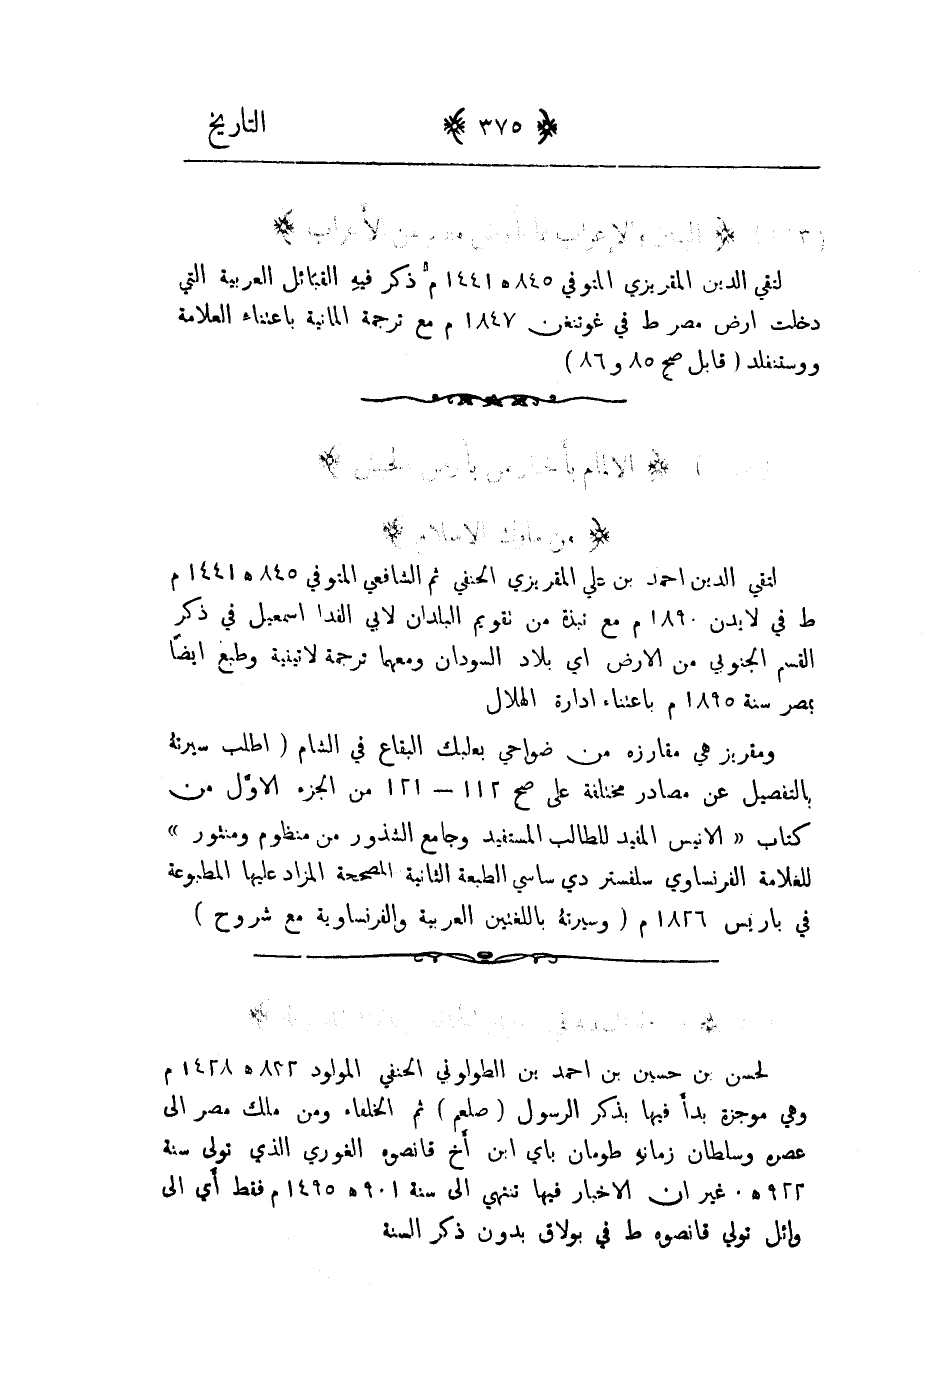 التاريخ ﴿ ٣٧٥ ﴾
﴿ البيان والإعراب بأرض مصر من الأعراب ﴾
لتقي الدين المقريزي المتوفي ٨٤٥ ه ١٤٤١ م ذكر فيه القبائل العربية التي
دخلت ارض مصر ط في غوتنغن ١٨٤٧ م مع ترجمة المانية باعتناء العلامة
ووستنفلد ( قابل صح ٨٥ و ٨٦ )
﴿ الالمام بأخبار من بأرض الحبش ﴾
﴿ من ملوك الاسلام ﴾
لتقي الدين احمد بن علي المقريزي الحنفي ثم الشافعي المتوفي ٨٤٥ ه ١٤٤١ م
ط في لايدن ١٨٩٠ م مع نبذة من تقويم البلدان لابي الفدا اسمعيل في ذكر
القسم الجنوبي من الارض اي بلاد السودان ومعهما ترجمة لاتينية وطبع ايضًا
بمصر سنة ١٨٩٥ م باعتناء ادارة الهلال
ومقريز هي مقارزه من ضواحي بعلبك البقاع في الشام ( اطلب سيرتهُ
بالتفصيل عن مصادر مختلفة على صح ١١٢ – ١٢١ من الجزء الاوّل من
كتاب « الانيس المفيد للطالب المستفيد وجامع الشذور من منظوم ومنثور »
للعلامة الفرنساوي سلفستر دي ساسي الطبعة الثانية المصححة المزاد عليها المطبوعة
في باريس ١٨٢٦ م ( وسيرتهُ باللغتين العربية والفرنساوية مع شروح )
لحسن بن حسين بن احمد بن الطولوني الحنفي المولود ٨٣٢ ه ١٤٢٨ م
وهي موجزة بدأ فيها بذكر الرسول ( صلعم ) ثم الخلفاء ومن ملك مصر الى
عصره وسلطان زمانهِ طومان باي ابن أخ قانصوه الغوري الذي تولى سنة
٩٢٢ ه ٠ غير ان الاخبار فيها تنتهي الى سنة ٩٠١ ه ١٤٩٥ م فقط أي الى
وائل تولي قانصوه ط في بولاق بدون ذكر السنة